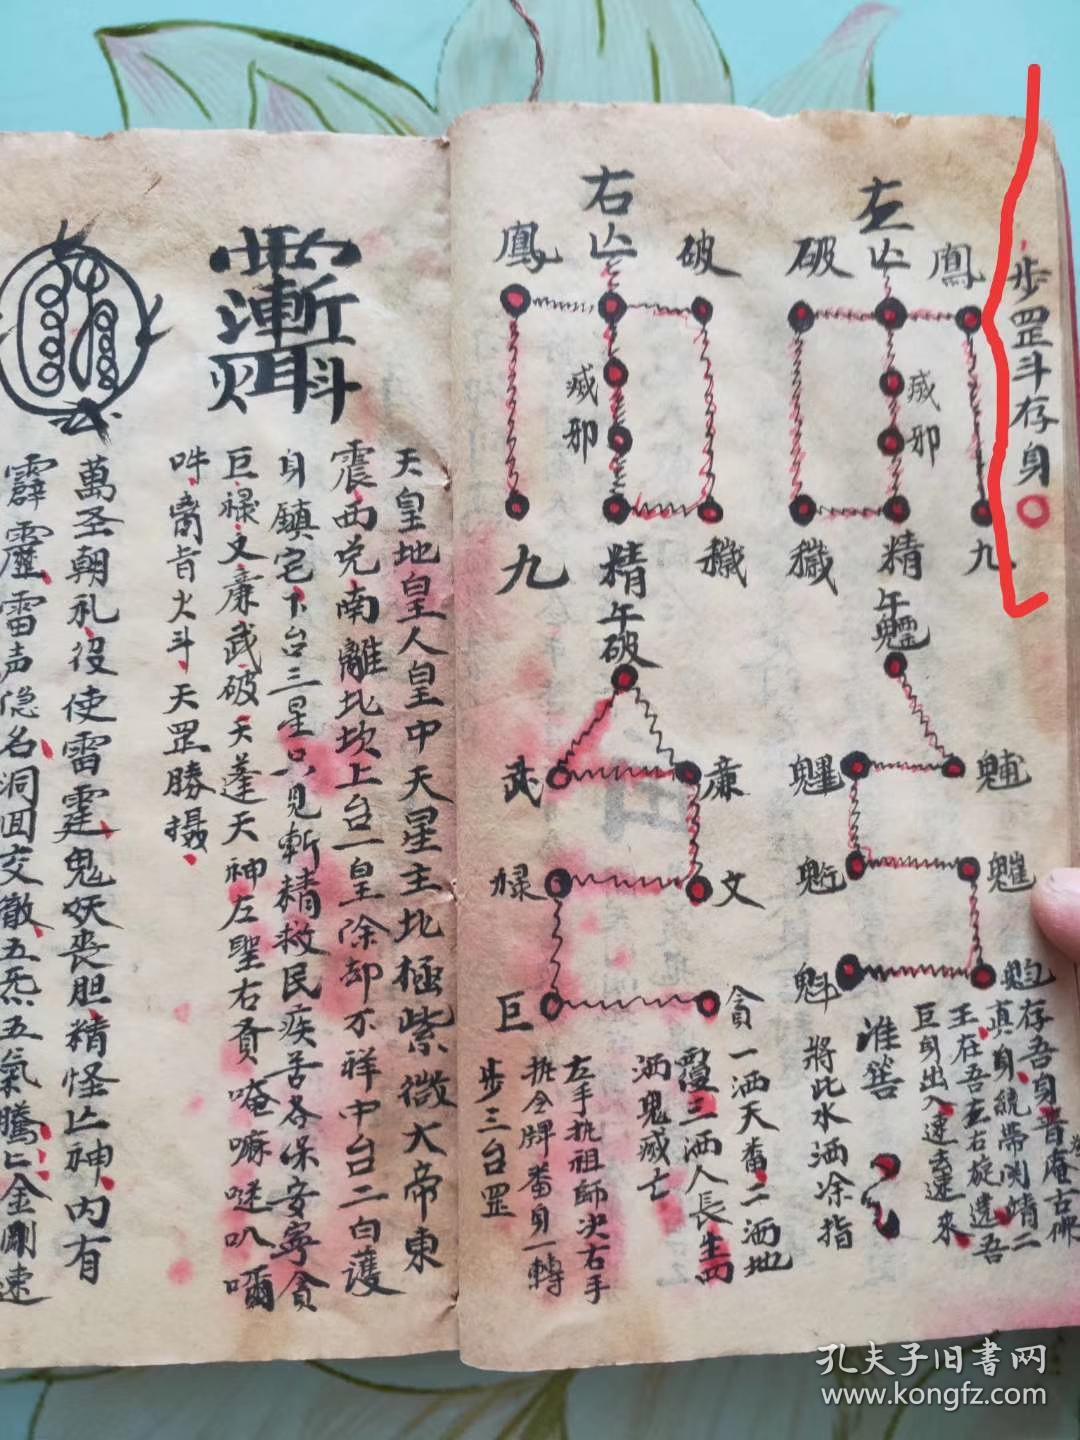 步罡斗存身
左
破 鳳
滅邪
穢 精 九
右
鳳 破
滅邪
九 精 穢
午
魓
魓
午破
武 廉
禄 文
巨 貪
存吾身普庵古佛
真身統帶閃靖二
王在吾左右旋遶吾
巨身出入速去速來
准
將此水洒凃指
一洒天番二洒地
覆三洒人長生四
洒鬼滅亡
左手执祖師决右手
执令牌番身一轉
步三台罡
天皇地皇人皇中天星主北極紫微大帝東
震西兑南離北坎上台一皇除却不祥中台二白護
身鎮宅下台三星只見斬精救民疾苦各保安寧貪
巨禄文廉武破天蓬天神左聖右賁唵嘛㖷叭嚩
吽火斗天罡勝摄
萬圣朝礼役使雷霆鬼妖丧胆精怪亡神内有
霹靂雷声隐名洞囬交徹五炁五氣騰匕金剛速
孔夫子旧書网
www.kongfz.com